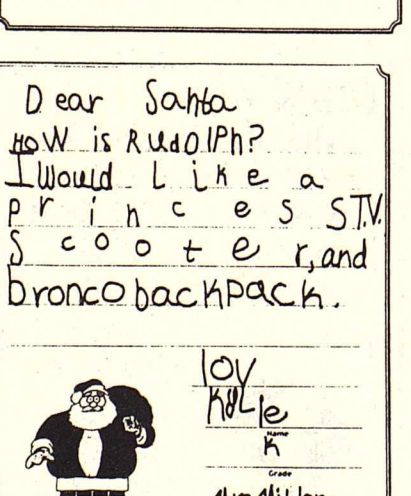 Dear Santa
HOW is RUdOlPh?
I Would Like a
princes S T.V.
Scooter, and
bronco backpack.
lov
Name
K
Grade